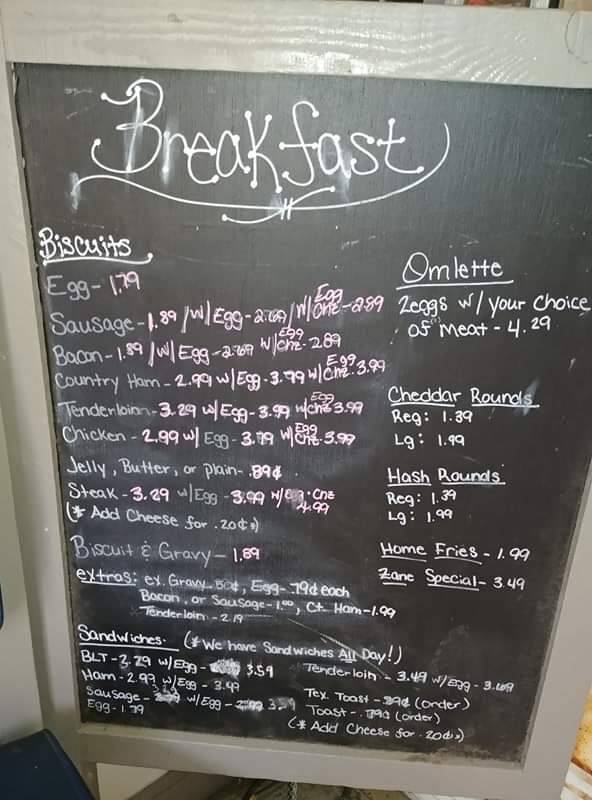 Breakfast
Biscuits
Egg - 1.79
Sausage - 1.89 / w/ Egg - 2.69 / w/ Egg Chz - 2.89
Bacon - 1.89 / w/ Egg - 2.69 w/ Egg Chz - 2.89
Country Ham - 2.99 w/ Egg - 3.79 w/ Egg Chz - 3.99
Tenderloin - 3.29 w/ Egg - 3.99 w/ Egg Chz 3.99
Chicken - 2.99 w/ Egg - 3.79 w/ Egg Chz - 3.99
Jelly, Butter, or plain - .89¢
Steak - 3.29 w/ Egg - 3.99 w/ Egg · Chz 4.99
(* Add Cheese for .20¢)
Biscuit & Gravy - 1.89
extras: ex. Gravy - 50¢, Egg - .79¢ each
Bacon, or Sausage - 1.00, Ct. Ham - 1.99
Tenderloin - 2.19
Omlette
2 eggs w/ your choice
of meat - 4.29
Cheddar Rounds
Reg: 1.39
Lg: 1.99
Hash Rounds
Reg: 1.39
Lg: 1.99
Home Fries - 1.99
Zane Special - 3.49
Sandwiches. (* We have Sandwiches All Day!)
BLT - 3.29 w/ Egg - 3.59
Ham - 2.99 w/ Egg - 3.49
Sausage - w/ Egg -
Egg - 1.79
Tenderloin - 3.49 w/ Egg - 3.69
Tex. Toast - .89¢ (order)
Toast - .79¢ (order)
(* Add Cheese for .20¢)